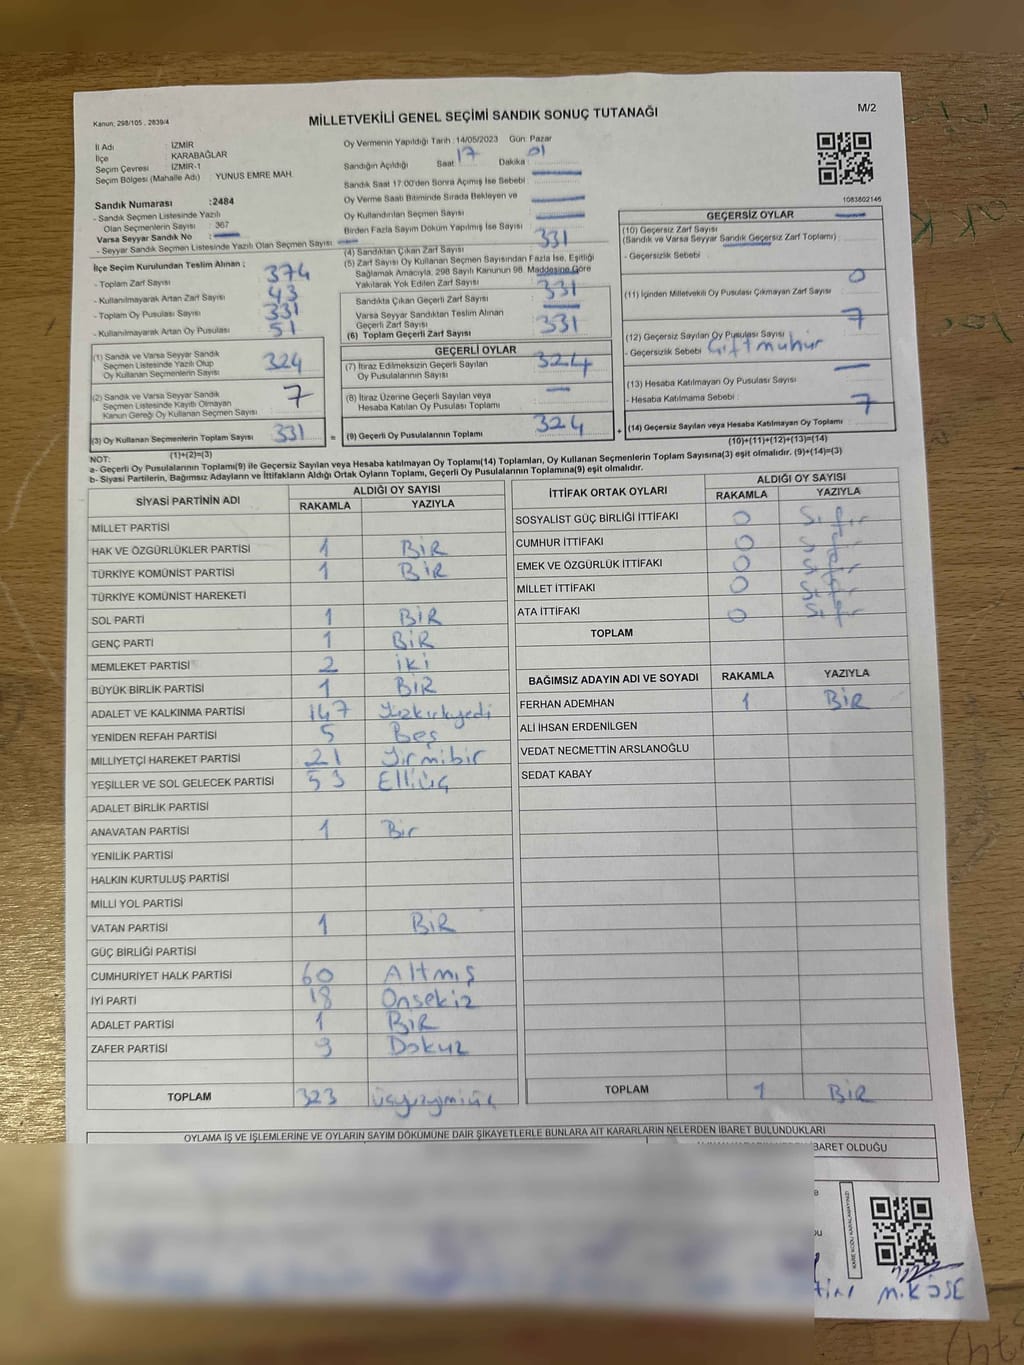 Kanun; 298/105 , 2839/4
MİLLETVEKİLİ GENEL SEÇİMİ SANDIK SONUÇ TUTANAĞI
M/2
İl Adı : İZMİR
İlçe : KARABAĞLAR
Seçim Çevresi : İZMİR-1
Seçim Bölgesi (Mahalle Adı) : YUNUS EMRE MAH.
Sandık Numarası :2484
- Sandık Seçmen Listesinde Yazılı
Olan Seçmenlerin Sayısı : 367
Varsa Seyyar Sandık No :
- Seyyar Sandık Seçmen Listesinde Yazılı Olan Seçmen Sayısı :
Oy Vermenin Yapıldığı Tarih : 14/05/2023 Gün: Pazar
Sandığın Açıldığı Saat : 17 Dakika : 01
Sandık Saat 17:00'den Sonra Açılmış İse Sebebi :
Oy Verme Saati Bitiminde Sırada Bekleyen ve
Oy Kullandırılan Seçmen Sayısı
Birden Fazla Sayım Döküm Yapılmış İse Sayısı :
1083802146
İlçe Seçim Kurulundan Teslim Alınan ;
- Toplam Zarf Sayısı : 374
- Kullanılmayarak Artan Zarf Sayısı : 43
- Toplam Oy Pusulası Sayısı : 331
- Kullanılmayarak Artan Oy Pusulası : 51
(1) Sandık ve Varsa Seyyar Sandık
Seçmen Listesinde Yazılı Olup
Oy Kullanan Seçmenlerin Sayısı 324
(2) Sandık ve Varsa Seyyar Sandık
Seçmen Listesinde Kayıtlı Olmayan
Kanun Gereği Oy Kullanan Seçmen Sayısı 7
(3) Oy Kullanan Seçmenlerin Toplam Sayısı 331 =
(1)+(2)=(3)
(4) Sandıktan Çıkan Zarf Sayısı 331
(5) Zarf Sayısı Oy Kullanan Seçmen Sayısından Fazla İse, Eşitliği
Sağlamak Amacıyla, 298 Sayılı Kanunun 98. Maddesine Göre
Yakılarak Yok Edilen Zarf Sayısı
Sandıkta Çıkan Geçerli Zarf Sayısı 331
Varsa Seyyar Sandıktan Teslim Alınan
Geçerli Zarf Sayısı
(6) Toplam Geçerli Zarf Sayısı 331
GEÇERLİ OYLAR
(7) İtiraz Edilmeksizin Geçerli Sayılan
Oy Pusulalarının Sayısı 324
(8) İtiraz Üzerine Geçerli Sayılan veya
Hesaba Katılan Oy Pusulası Toplamı
(9) Geçerli Oy Pusulalarının Toplamı 324 +
GEÇERSİZ OYLAR
(10) Geçersiz Zarf Sayısı
(Sandık ve Varsa Seyyar Sandık Geçersiz Zarf Toplamı) :
- Geçersizlik Sebebi :
(11) İçinden Milletvekili Oy Pusulası Çıkmayan Zarf Sayısı 0
(12) Geçersiz Sayılan Oy Pusulası Sayısı 7
- Geçersizlik Sebebi Çift mühür
(13) Hesaba Katılmayan Oy Pusulası Sayısı
- Hesaba Katılmama Sebebi :
(14) Geçersiz Sayılan veya Hesaba Katılmayan Oy Toplamı 7
(10)+(11)+(12)+(13)=(14)
NOT:
a- Geçerli Oy Pusulalarının Toplamı(9) ile Geçersiz Sayılan veya Hesaba katılmayan Oy Toplamı(14) Toplamları, Oy Kullanan Seçmenlerin Toplam Sayısına(3) eşit olmalıdır. (9)+(14)=(3)
b- Siyasi Partilerin, Bağımsız Adayların ve İttifakların Aldığı Ortak Oyların Toplamı, Geçerli Oy Pusulalarının Toplamına(9) eşit olmalıdır.
SİYASİ PARTİNİN ADI ALDIĞI OY SAYISI
RAKAMLA YAZIYLA
MİLLET PARTİSİ
HAK VE ÖZGÜRLÜKLER PARTİSİ 1 BİR
TÜRKİYE KOMÜNİST PARTİSİ 1 BİR
TÜRKİYE KOMÜNİST HAREKETİ
SOL PARTİ 1 BİR
GENÇ PARTİ 1 BİR
MEMLEKET PARTİSİ 2 iki
BÜYÜK BİRLİK PARTİSİ 1 BİR
ADALET VE KALKINMA PARTİSİ 147 Yüzkırkyedi
YENİDEN REFAH PARTİSİ 5 Beş
MİLLİYETÇİ HAREKET PARTİSİ 21 Yirmibir
YEŞİLLER VE SOL GELECEK PARTİSİ 53 Elliüç
ADALET BİRLİK PARTİSİ
ANAVATAN PARTİSİ 1 Bir
YENİLİK PARTİSİ
HALKIN KURTULUŞ PARTİSİ
MİLLİ YOL PARTİSİ
VATAN PARTİSİ 1 BİR
GÜÇ BİRLİĞİ PARTİSİ
CUMHURİYET HALK PARTİSİ 60 Altmış
İYİ PARTİ 18 Onsekiz
ADALET PARTİSİ 1 BİR
ZAFER PARTİSİ 9 Dokuz
TOPLAM 323
İTTİFAK ORTAK OYLARI ALDIĞI OY SAYISI
RAKAMLA YAZIYLA
SOSYALİST GÜÇ BİRLİĞİ İTTİFAKI 0 Sıfır
CUMHUR İTTİFAKI 0 Sıfır
EMEK VE ÖZGÜRLÜK İTTİFAKI 0 Sıfır
MİLLET İTTİFAKI 0 Sıfır
ATA İTTİFAKI 0 Sıfır
TOPLAM
BAĞIMSIZ ADAYIN ADI VE SOYADI RAKAMLA YAZIYLA
FERHAN ADEMHAN 1 BİR
ALİ İHSAN ERDENİLGEN
VEDAT NECMETTİN ARSLANOĞLU
SEDAT KABAY
TOPLAM 1 BİR
OYLAMA İŞ VE İŞLEMLERİNE VE OYLARIN SAYIM DÖKÜMÜNE DAİR ŞİKAYETLERLE BUNLARA AİT KARARLARIN NELERDEN İBARET BULUNDUKLARI
BARET OLDUĞU
KARE KODU KARALAMAYINIZ!
M.KÖSE